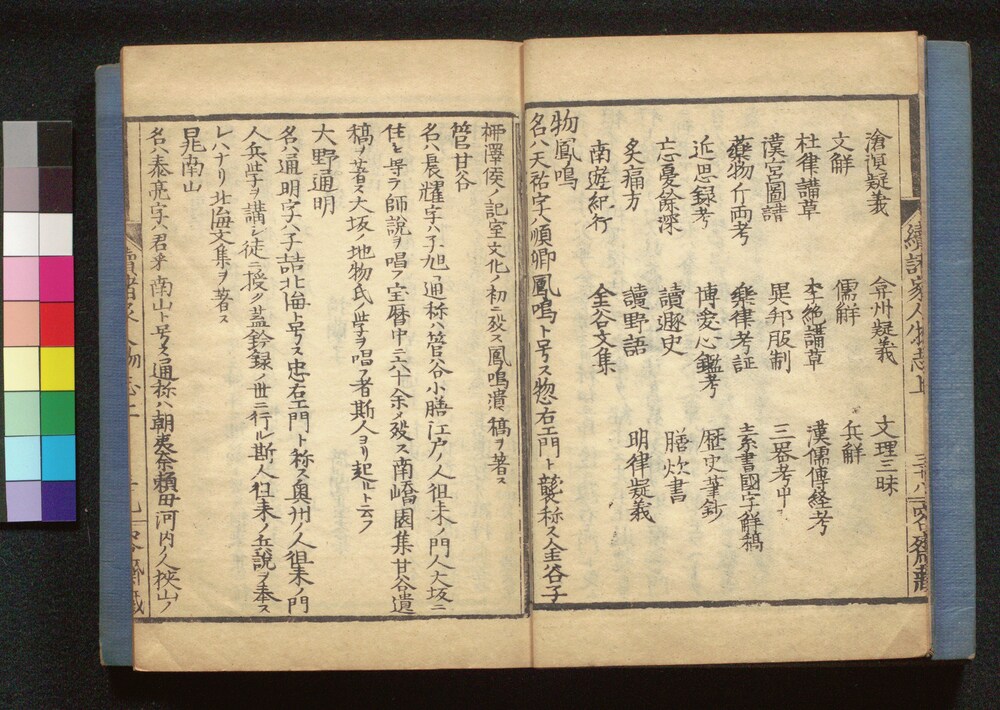 續諸家人物志上
滄溟疑義　弇州疑義　文理三昧
文觧　儒觧　兵觧
杜律講草　李絶講草　漢儒傳経考
漢宮圖譜　異邦服制　三器考中
藥物斤両考　樂律考証　素書國字觧稿
近思録考　博愛心鑑考　歴史筆鈔
忘憂餘深　讀遯史　膳炊書
炙痛方　讀野語　明律疑義
南遊紀行　金谷文集
物鳳鳴
名ハ天祐字ハ順卿鳳鳴ト号ス惣右エ門ト襲称ス金谷子
柳澤侯ノ記室文化ノ初ニ殁ス鳳鳴潰稿ヲ著ス
管甘谷
名ハ長耀字ハ子旭通称ハ管谷小膳江戸ノ人徂徠ノ門人大坂ニ
住ヒ專ラ師說ヲ唱フ宝暦中ニ六十余ノ殁ス南嶠園集甘谷遺
稿ヲ著ス大坂ノ地物氏ノ學ヲ唱フ者斯人ヨリ起ルト云フ
大野通明
名ハ通明字ハ子詰北海ト号ス忠右エ門ト称ス奥州ノ人徂徠ノ門
人兵學ヲ講シ徒ニ授ク蓋鈐録ノ世ニ行ル斯人徂来ノ兵說ヲ奉ス
レハナリ北海文集ヲ著ス
晁南山
名ハ泰亮字ハ君采南山ト号ス通称ハ朝夷奈賴母河内ノ人狹山ノ